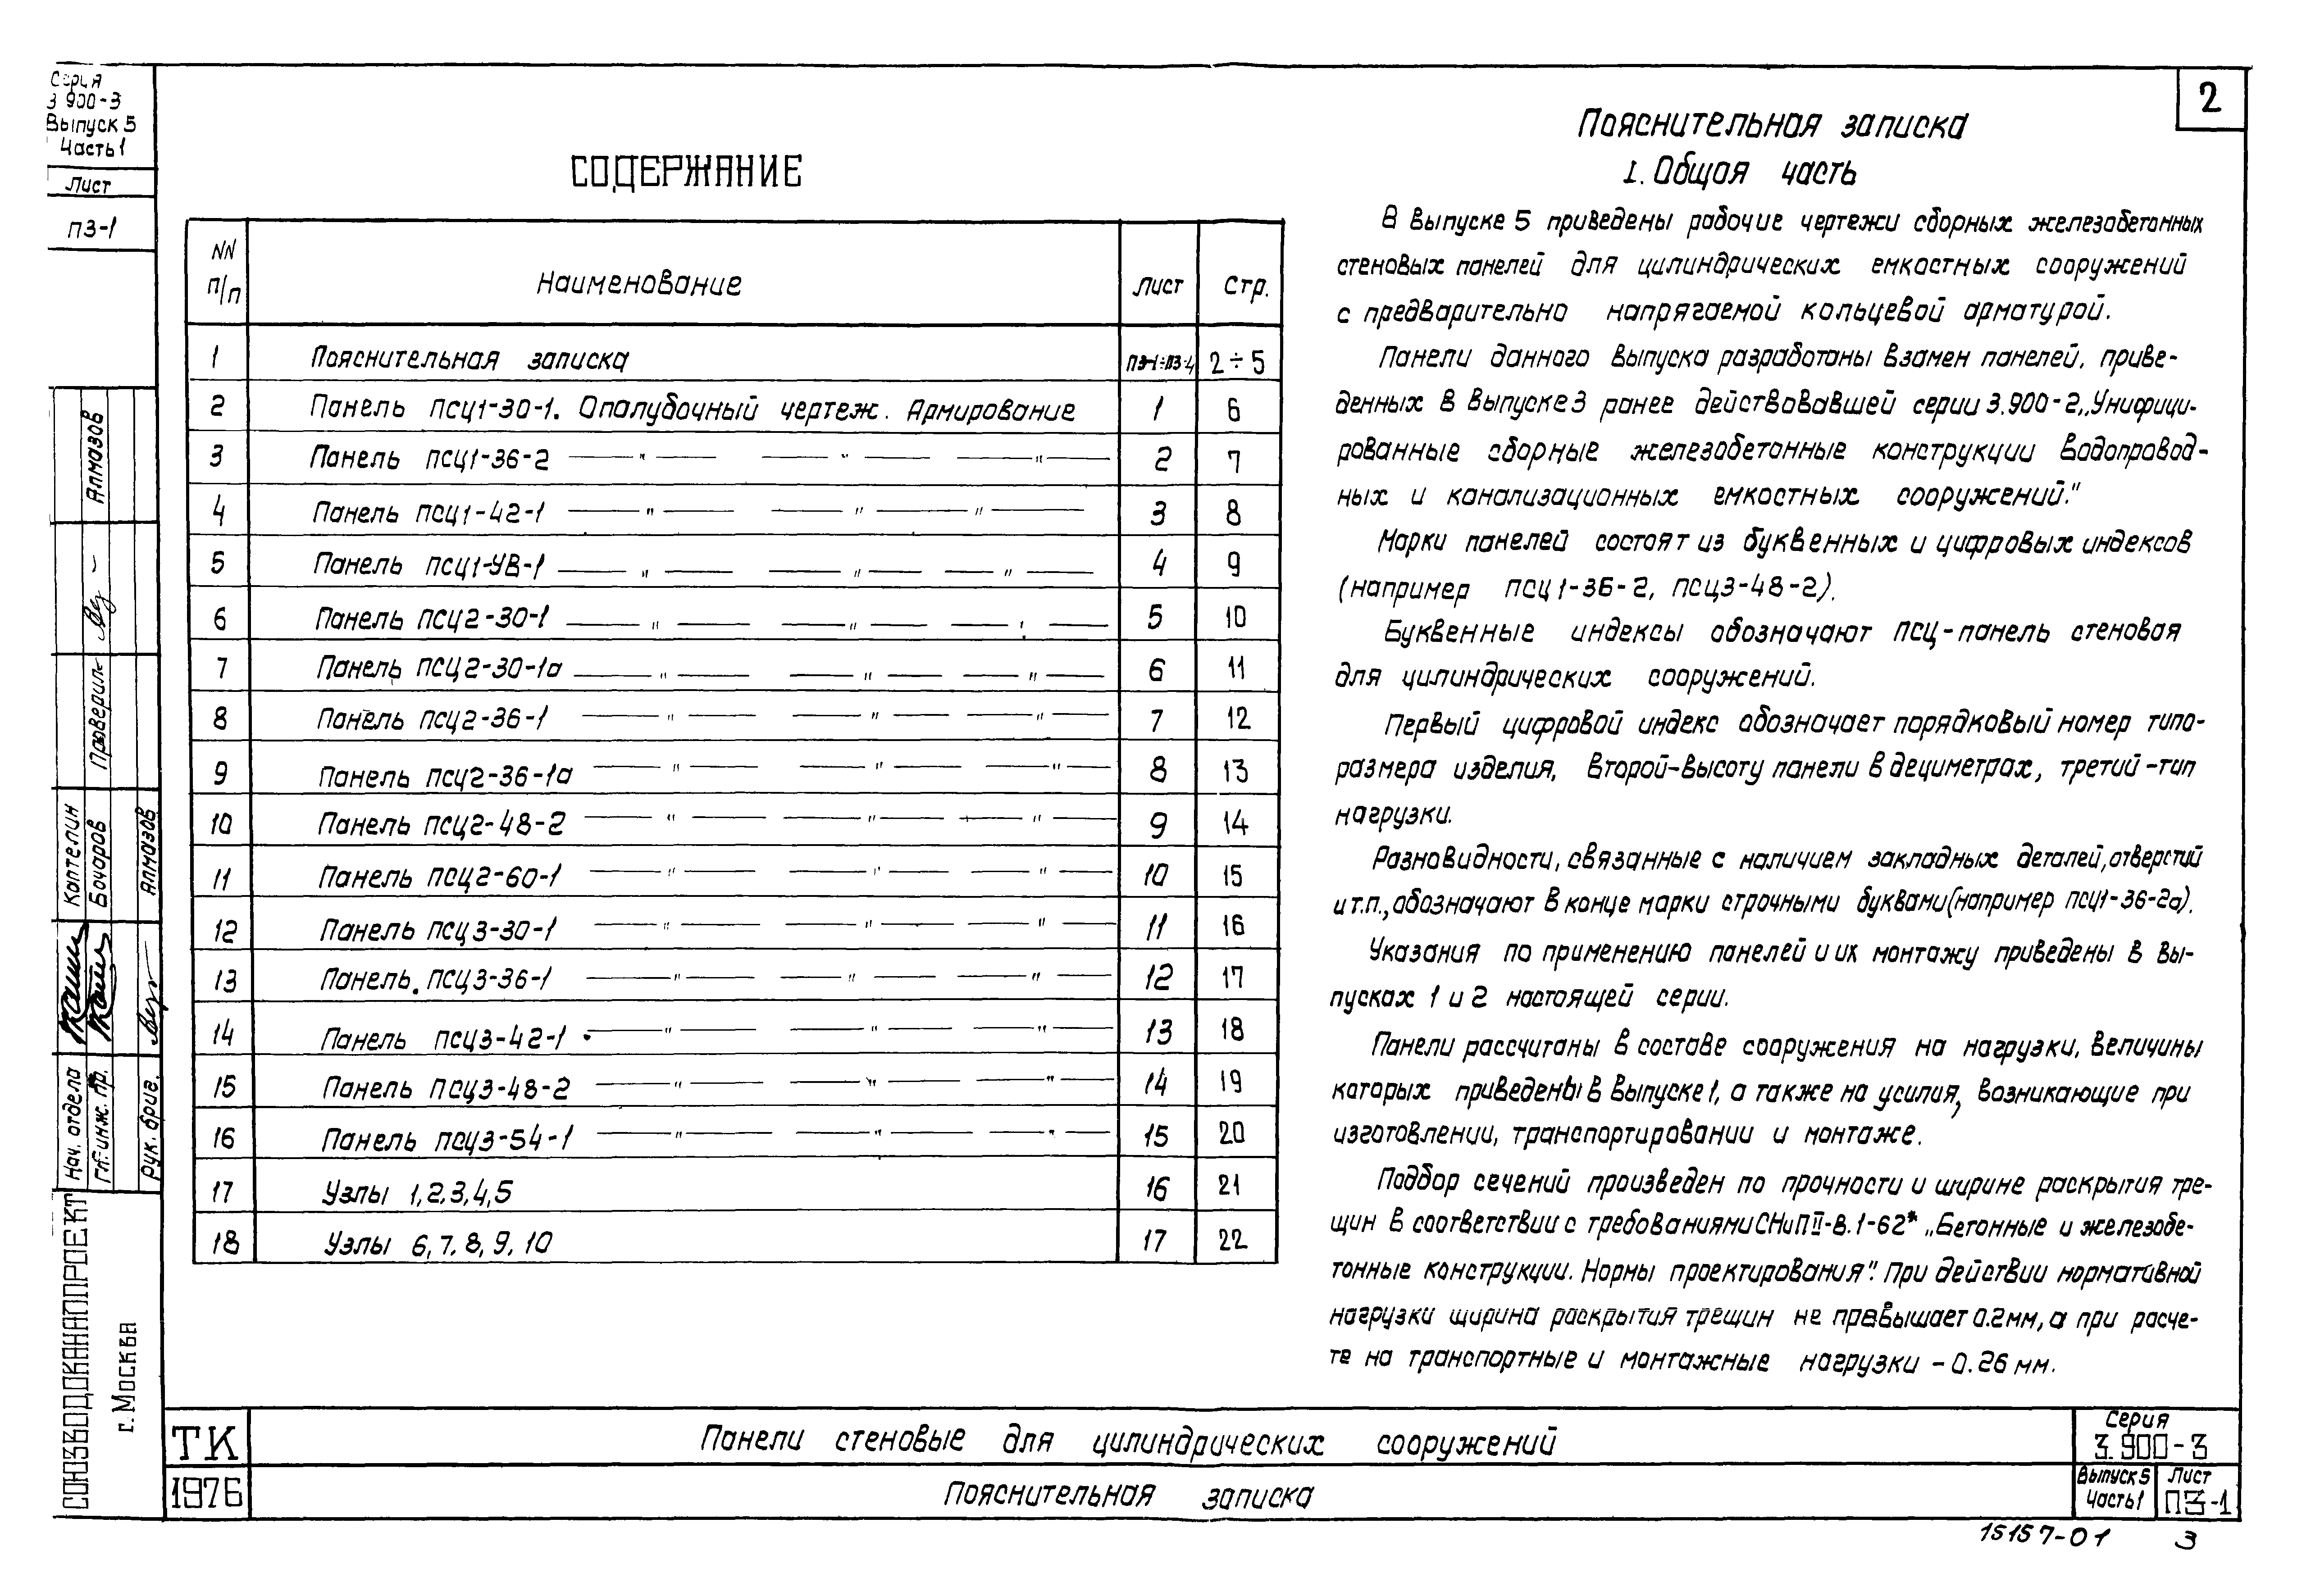 Серия
3.900-3
Выпуск 5
Часть 1
Лист
ПЗ-1
2
СОДЕРЖАНИЕ
NN п/п Наименование Лист Стр.
1 Пояснительная записка ПЗ-1÷ПЗ-4 2÷5
2 Панель ПСЦ1-30-1. Опалубочный чертеж. Армирование 1 6
3 Панель ПСЦ1-36-2 — " — — " — — " — 2 7
4 Панель ПСЦ1-42-1 — " — — " — " — 3 8
5 Панель ПСЦ1-УВ-1 — " — — " — — " — 4 9
6 Панель ПСЦ2-30-1 — " — — " — — " — 5 10
7 Панель ПСЦ2-30-1а — " — — " — — " — 6 11
8 Панель ПСЦ2-36-1 — " — — " — — " — 7 12
9 Панель ПСЦ2-36-1а — " — — " — — " 8 13
10 Панель ПСЦ2-48-2 — " — — " — — " — 9 14
11 Панель ПСЦ2-60-1 — " — — " — — " — 10 15
12 Панель ПСЦ3-30-1 — " — — " — — " — 11 16
13 Панель ПСЦ3-36-1 — " — — " — — " — 12 17
14 Панель ПСЦ3-42-1 — " — — " — — " 13 18
15 Панель ПСЦ3-48-2 — " — — " — — " 14 19
16 Панель ПСЦ3-54-1 — " — — " — — " 15 20
17 Узлы 1,2,3,4,5 16 21
18 Узлы 6,7,8,9,10 17 22
Пояснительная записка
I. Общая часть
В выпуске 5 приведены рабочие чертежи сборных железобетонных
стеновых панелей для цилиндрических емкостных сооружений
с предварительно напрягаемой кольцевой арматурой.
Панели данного выпуска разработаны взамен панелей, приве-
денных в выпуске 3 ранее действовавшей серии 3.900-2 „Унифици-
рованные сборные железобетонные конструкции водопровод-
ных и канализационных емкостных сооружений."
Марки панелей состоят из буквенных и цифровых индексов
(например ПСЦ1-36-2, ПСЦ3-48-2).
Буквенные индексы обозначают ПСЦ-панель стеновая
для цилиндрических сооружений.
Первый цифровой индекс обозначает порядковый номер типо-
размера изделия, второй-высоту панели в дециметрах, третий-тип
нагрузки.
Разновидности, связанные с наличием закладных деталей, отверстий
и т.п., обозначают в конце марки строчными буквами (например ПСЦ1-36-2а).
Указания по применению панелей и их монтажу приведены в вы-
пусках 1 и 2 настоящей серии.
Панели рассчитаны в составе сооружения на нагрузки, величины
которых приведены в выпуске 1, а также на усилия, возникающие при
изготовлении, транспортировании и монтаже.
Подбор сечений произведен по прочности и ширине раскрытия тре-
щин в соответствии с требованиями СНиП II-В.1-62* „Бетонные и железобе-
тонные конструкции. Нормы проектирования". При действии нормативной
нагрузки ширина раскрытия трещин не превышает 0.2мм, а при расче-
те на транспортные и монтажные нагрузки - 0.26 мм.
Алмазов
Проверил
Каптелин
Бочаров
Алмазов
Нач. отдела
Гл. инж. пр.
Рук. бриг.
СОЮЗВОДОКАНАЛПРОЕКТ
г. Москва
ТК
1976
Панели стеновые для цилиндрических сооружений
Пояснительная записка
Серия
3.900-3
Выпуск 5
Часть 1
Лист
ПЗ-1
15157-01 3